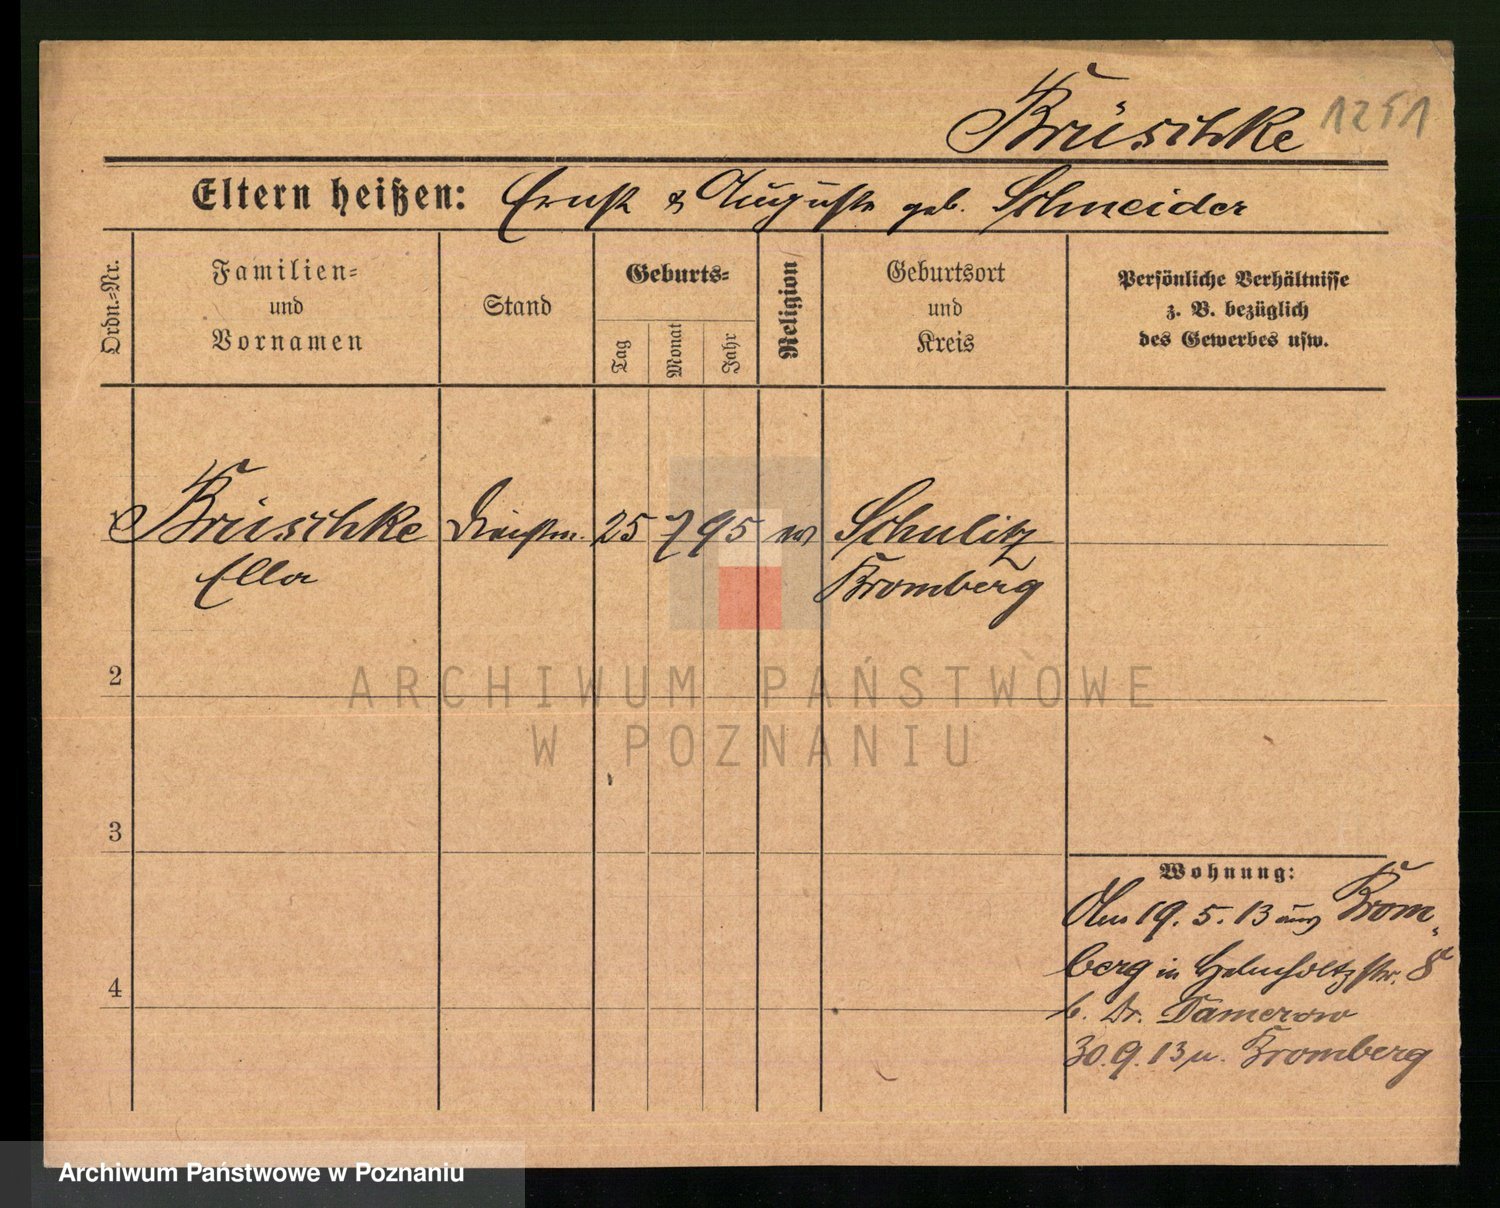 Brüschke 1251
Eltern heißen: Ernst & Auguste geb. Schneider
Ordn.=Nr.
Familien=
und
Vornamen
Stand
Geburts=
Tag
Monat
Jahr
Religion
Geburtsort
und
Kreis
Persönliche Verhältnisse
z. B. bezüglich
des Gewerbes usw.
1 Brüschke Dienstm. 25 7 95 ev Schulitz
Ella Bromberg
ARCHIWUM PAŃSTWOWE
W POZNANIU
2
3
4
Wohnung:
Am 19. 5. 13 aus Brom-
berg in Helmholtzstr. 8
b. Dr. Damerow
30. 9. 13 n. Bromberg
Archiwum Państwowe w Poznaniu